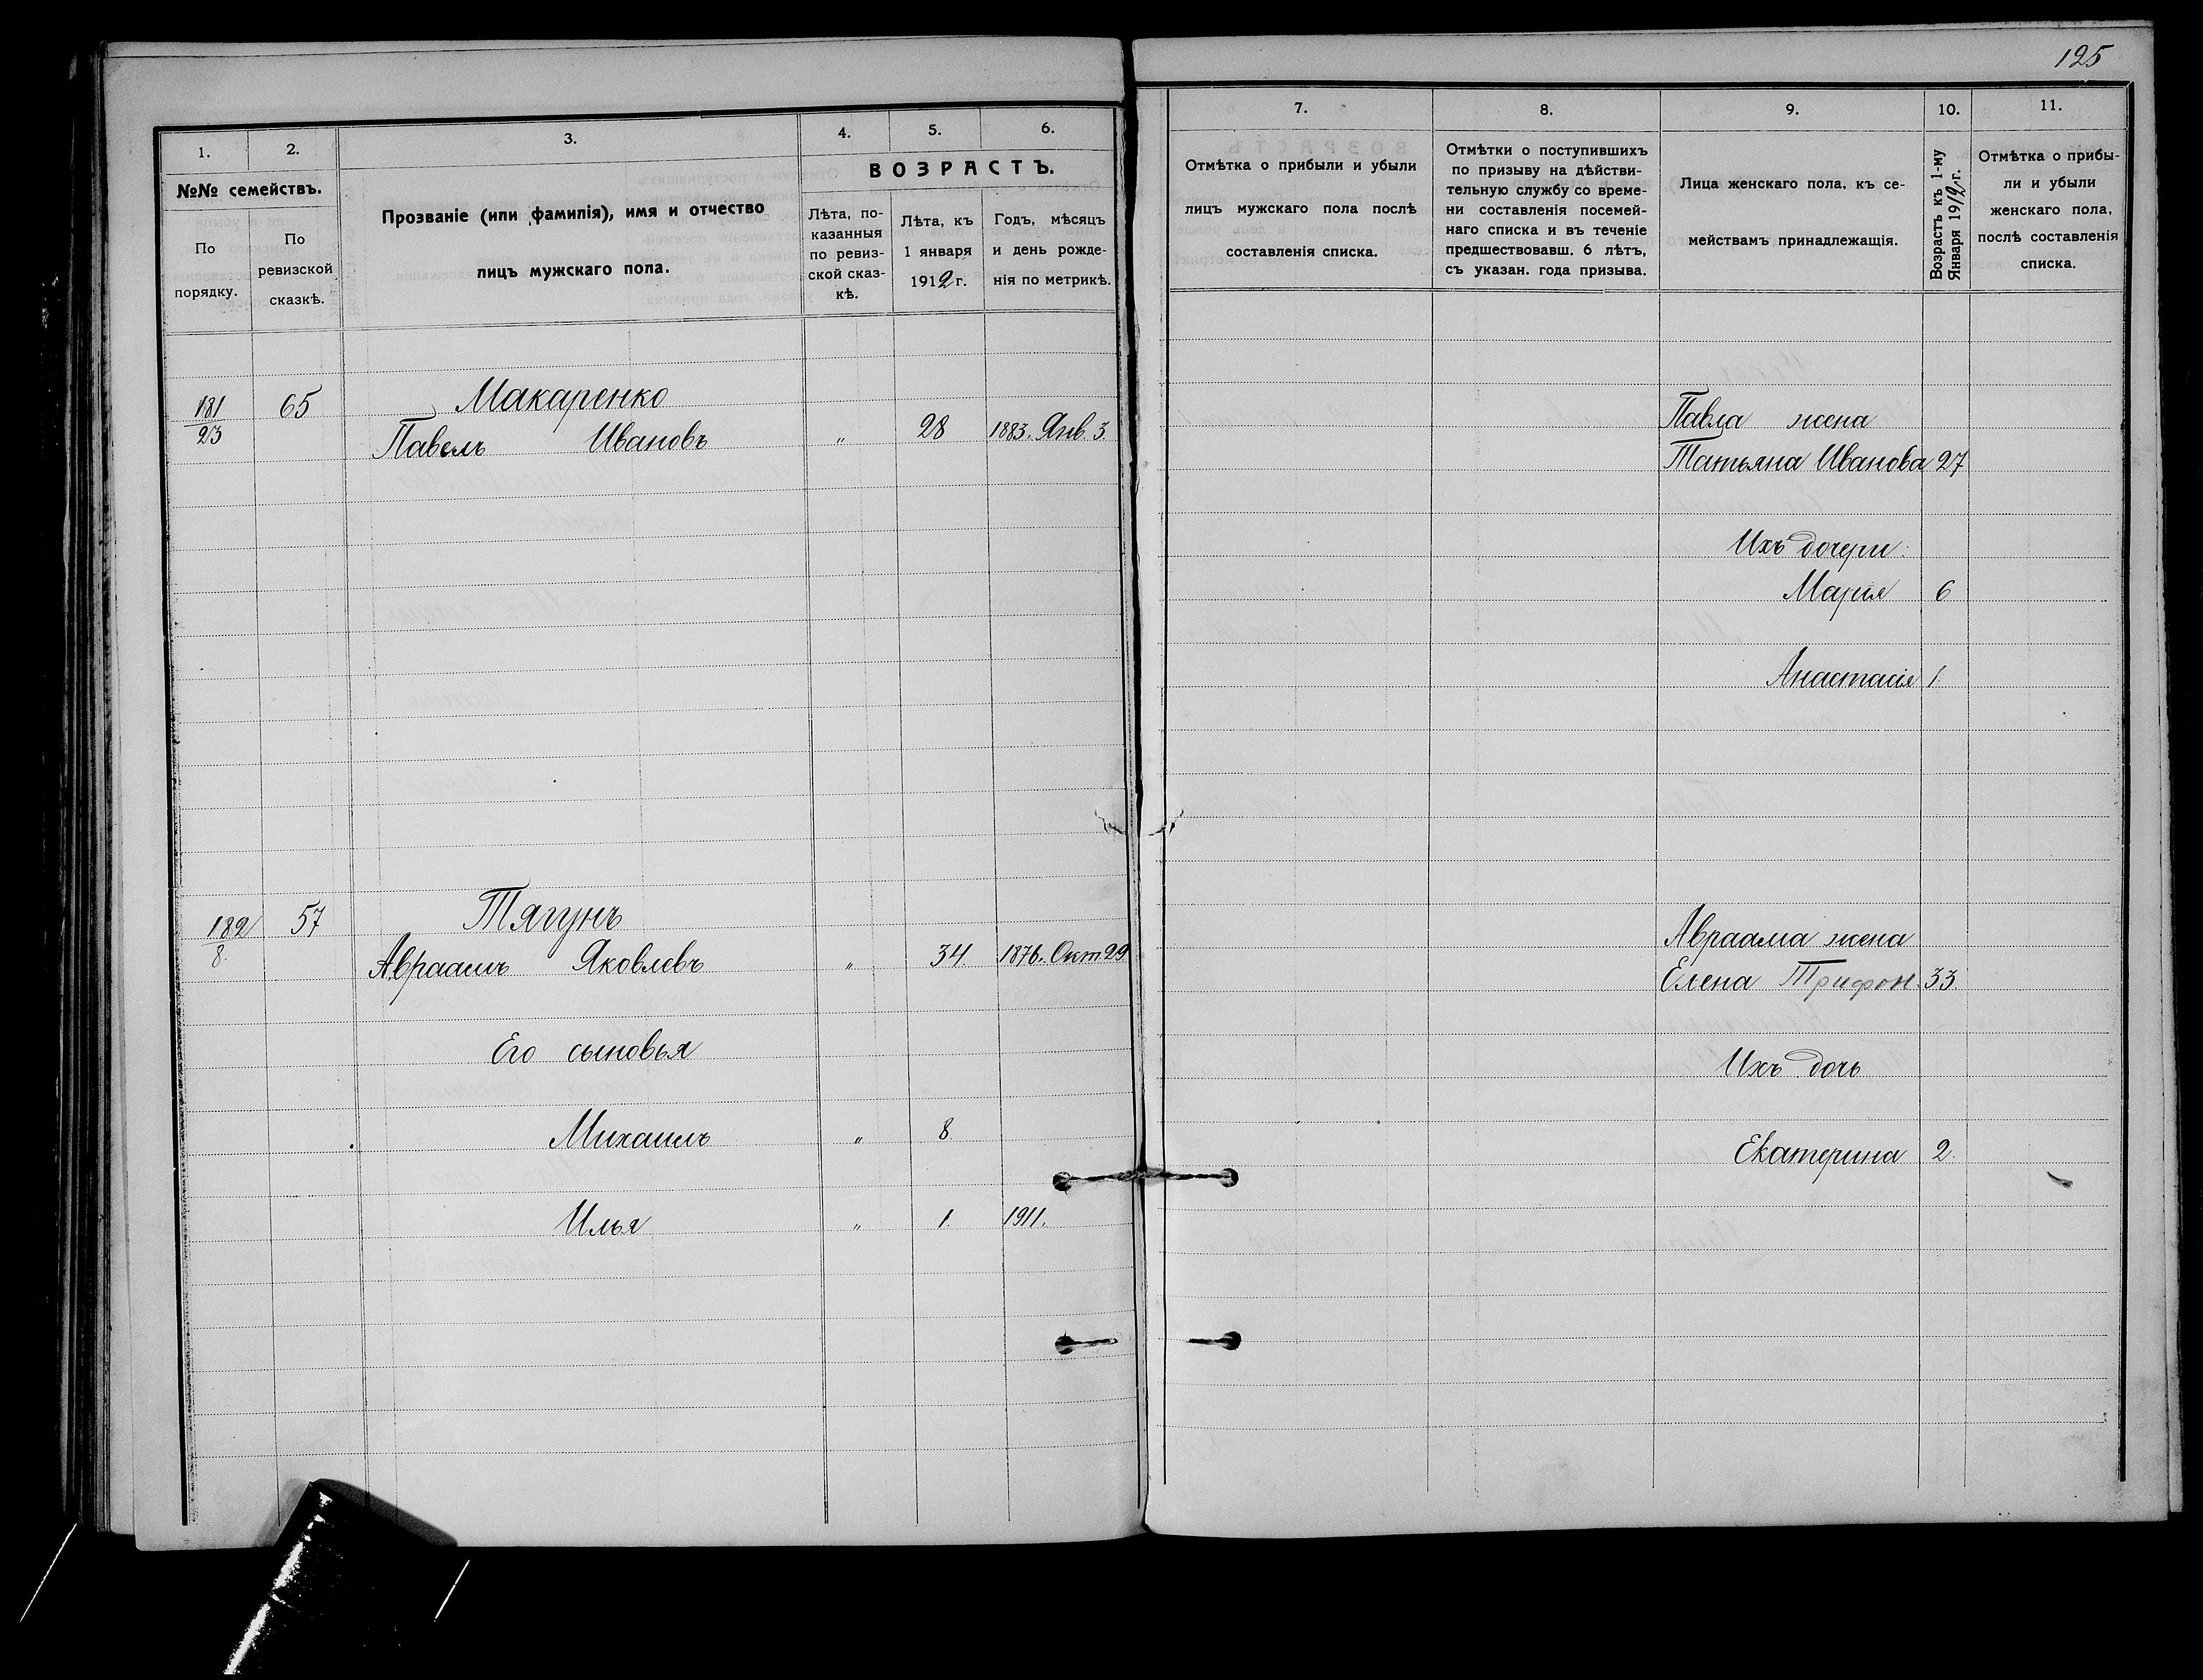 125
1.
2.
3.
4.
5.
6.
№№ семействъ.
По порядку.
По ревизской сказкѣ.
Прозваніе (или фамилія), имя и отчество
лицъ мужскаго пола.
ВОЗРАСТЪ.
Лѣта, по-
казанныя
по ревиз-
ской сказ-
кѣ.
Лѣта, къ
1 января
1912 г.
Годъ, мѣсяцъ
и день рожде-
нія по метрикѣ.
181
23
65
Макаренко
Павелъ Ивановъ " 28 1883. Янв. 3.
182
8.
57
Тягунъ
Авраамъ Яковлевъ " 34. 1876. Окт. 29
Его сыновья
Михаилъ " 8.
Илья " 1. 1911.
7.
8.
9.
10.
11.
Отмѣтка о прибыли и убыли
лицъ мужскаго пола послѣ
составленія списка.
Отмѣтки о поступившихъ
по призыву на дѣйстви-
тельную службу со време-
ни составленія посемей-
наго списка и въ теченіе
предшествовавш. 6 лѣтъ,
съ указан. года призыва.
Лица женскаго пола, къ се-
мействамъ принадлежащія.
Возрастъ къ 1-му
Января 1912 г.
Отмѣтка о прибы-
ли и убыли
женскаго пола,
послѣ составленія
списка.
Павла жена
Татьяна Иванова 27
Ихъ дочери:
Марія 6
Анастасія 1.
Авраама жена
Елена Трифон. 33.
Ихъ дочь
Екатерина 2.